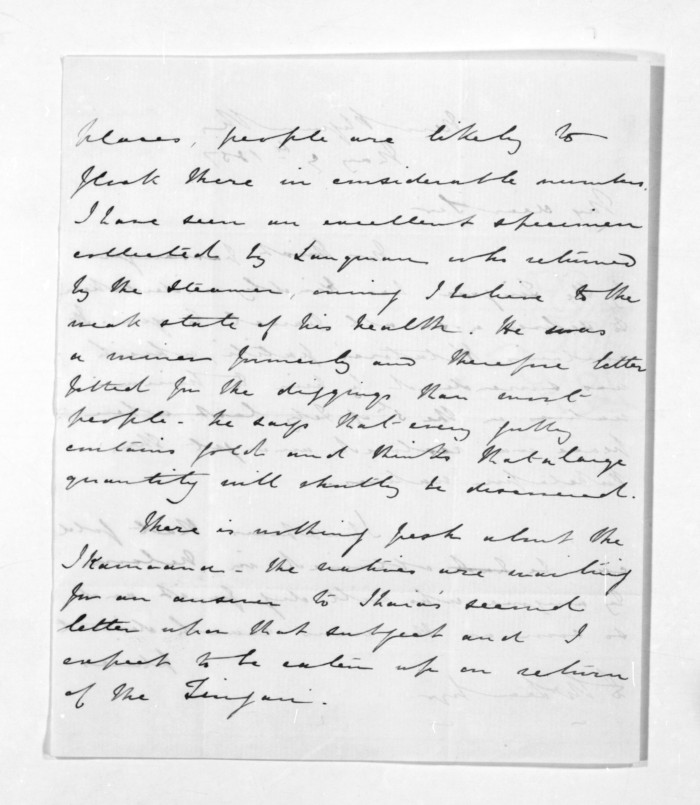 places, people are likely to
flock there in considerable numbers.
I have seen an excellent specimen
collected by Langman who returned
by the steamer, owing I believe to the
weak state of his health. He was
a miner formerly and therefore better
fitted for the diggings than most
people - he says that every gully
contains gold and thinks that a large
quantity will shortly be discovered.
There is nothing fresh about the
Ikamoana - the natives are waiting
for an answer to Ihaia's second
letter upon that subject and I
expect to be eaten up on return
of the Zingari.